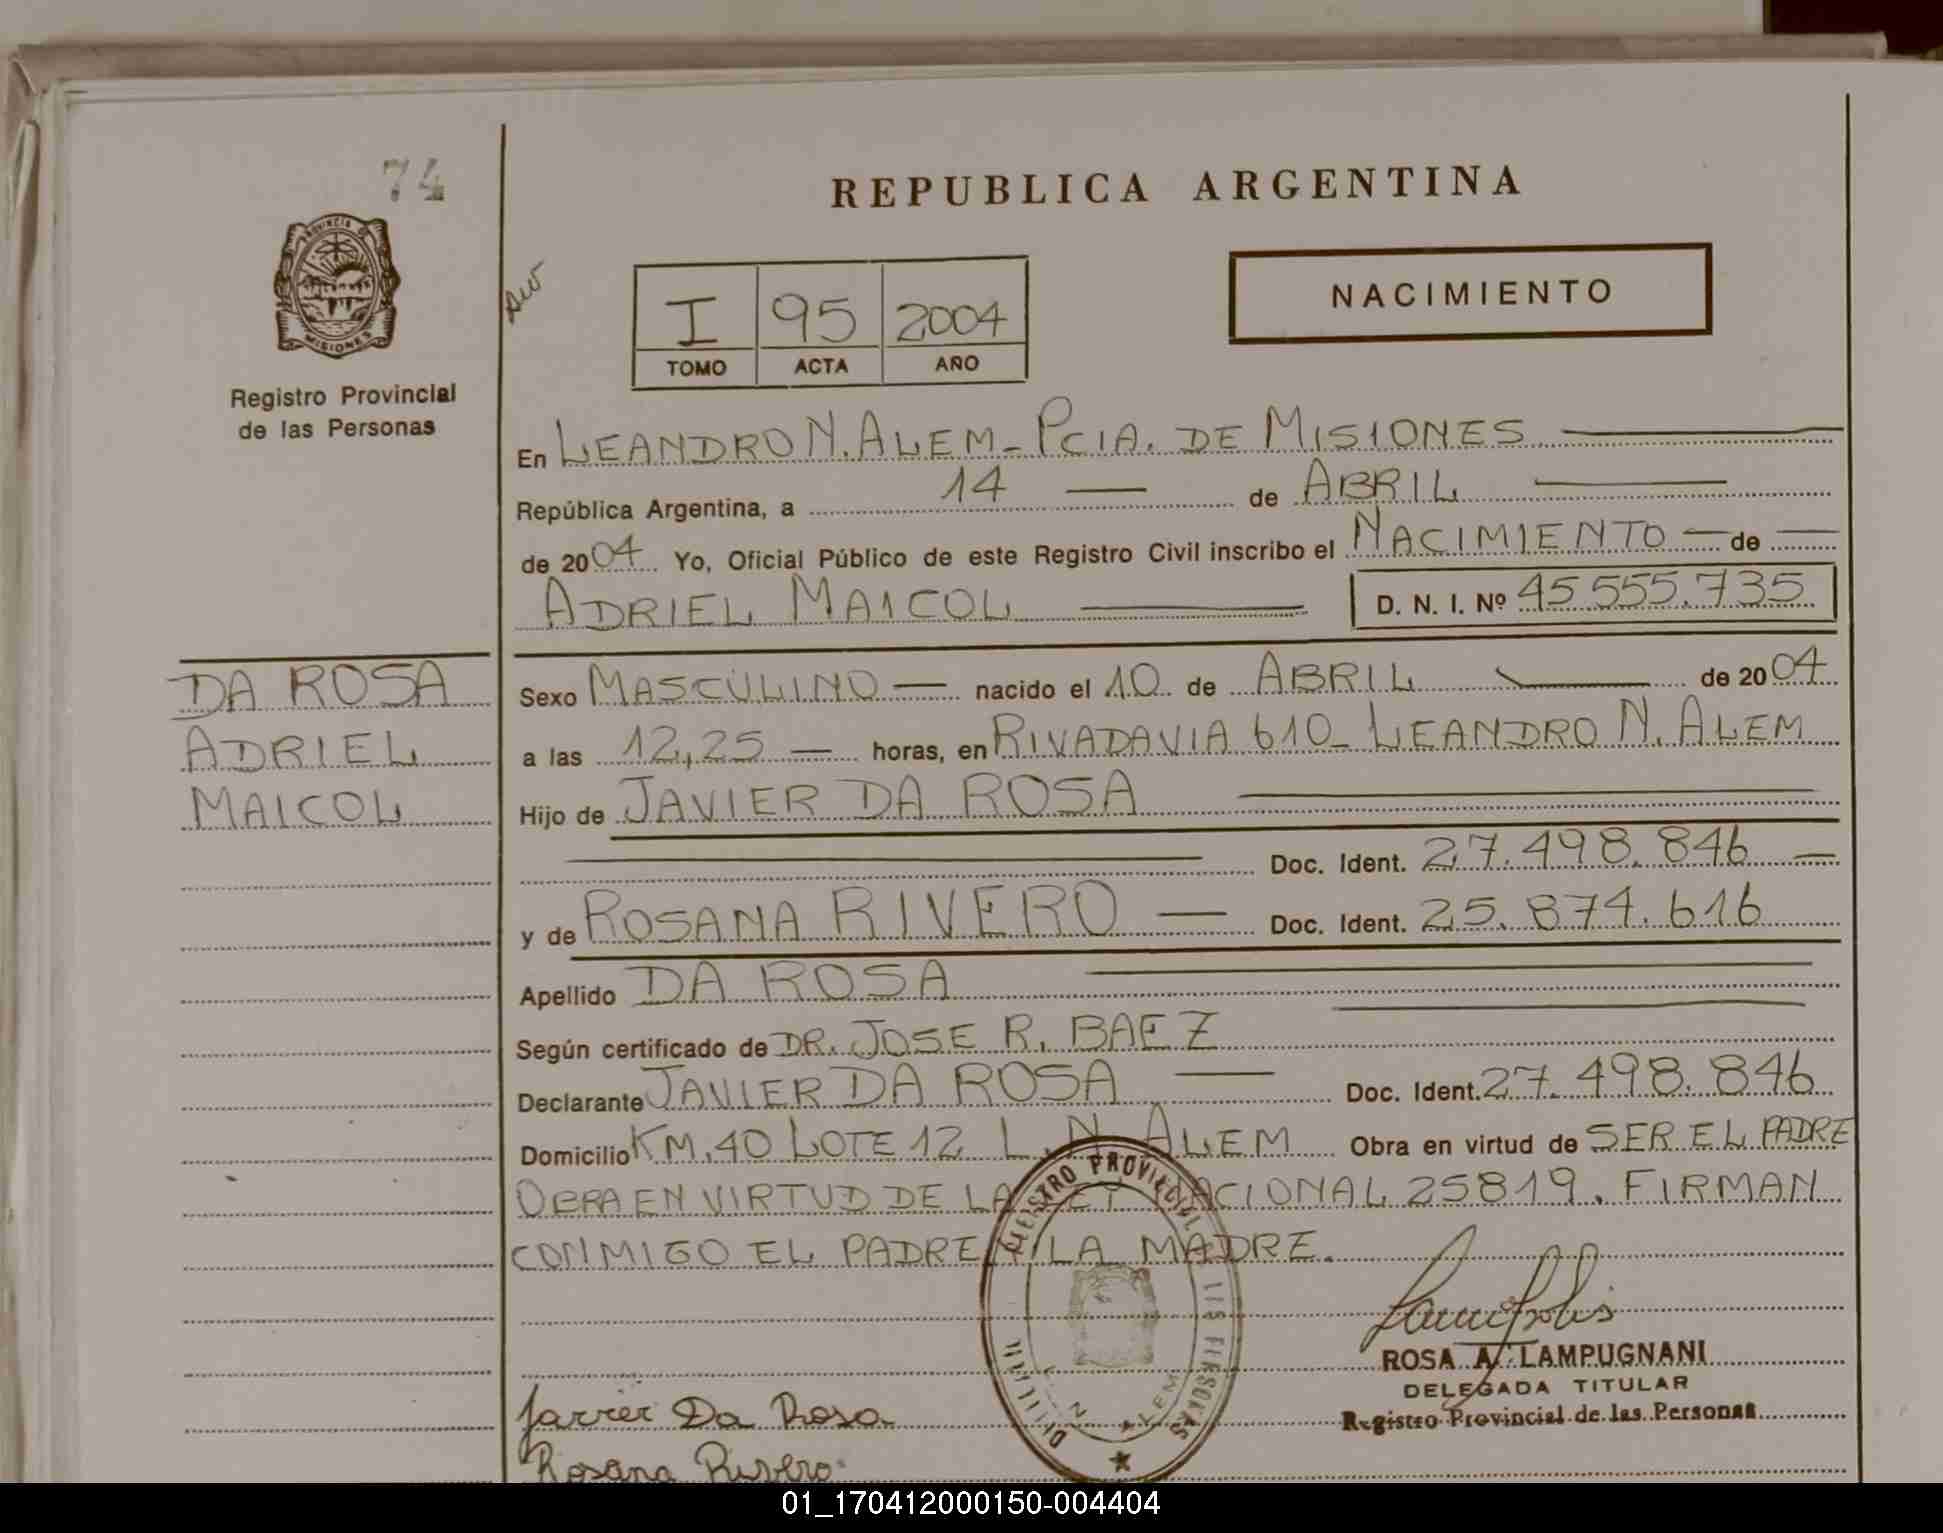 74
REPUBLICA ARGENTINA
PROVINCIA DE
MISIONES
Registro Provincial
de las Personas
I 95 2004
TOMO ACTA AÑO
NACIMIENTO
En LEANDRO N. ALEM - PCIA. DE MISIONES
República Argentina, a 14 — de ABRIL —
de 2004 Yo, Oficial Público de este Registro Civil inscribo el NACIMIENTO — de —
ADRIEL MAICOL — D. N. I. Nº 45.555.735
DA ROSA
ADRIEL
MAICOL
Sexo MASCULINO — nacido el 10 de ABRIL — de 2004
a las 12,25 — horas, en RIVADAVIA 610 - LEANDRO N. ALEM
Hijo de JAVIER DA ROSA —
— Doc. Ident. 27.498.846 —
y de ROSANA RIVERO — Doc. Ident. 25.874.616
Apellido DA ROSA —
Según certificado de DR. JOSE R. BAEZ —
Declarante JAVIER DA ROSA — Doc. Ident. 27.498.846
Domicilio KM. 40 LOTE 12 L. N. ALEM Obra en virtud de SER EL PADRE
OBRA EN VIRTUD DE LA LEY NACIONAL 25819. FIRMAN
CONMIGO EL PADRE Y LA MADRE.
ROSA A. LAMPUGNANI
DELEGADA TITULAR
Registro Provincial de las Personas
Javier Da Rosa
Rosana Rivero
01_170412000150-004404